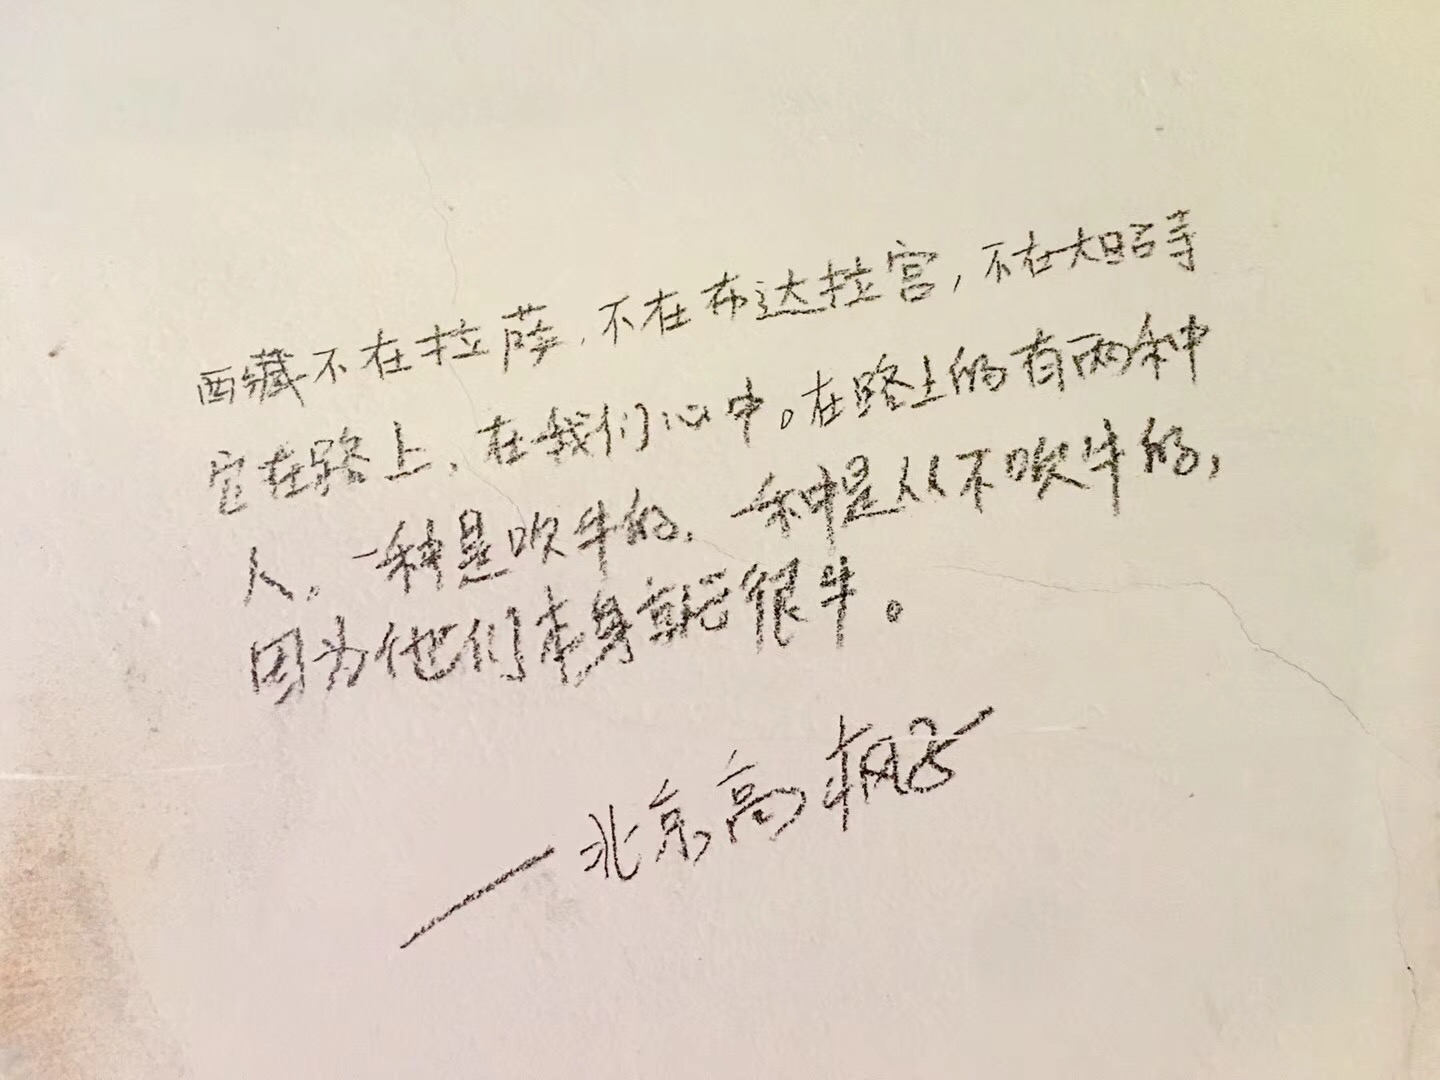 西藏不在拉萨,不在布达拉宫,不在大昭寺
它在路上,在我们心中。在路上的有两种
人,一种是吹牛的,一种是从不吹牛的,
因为他们本身就已很牛。
——北京高